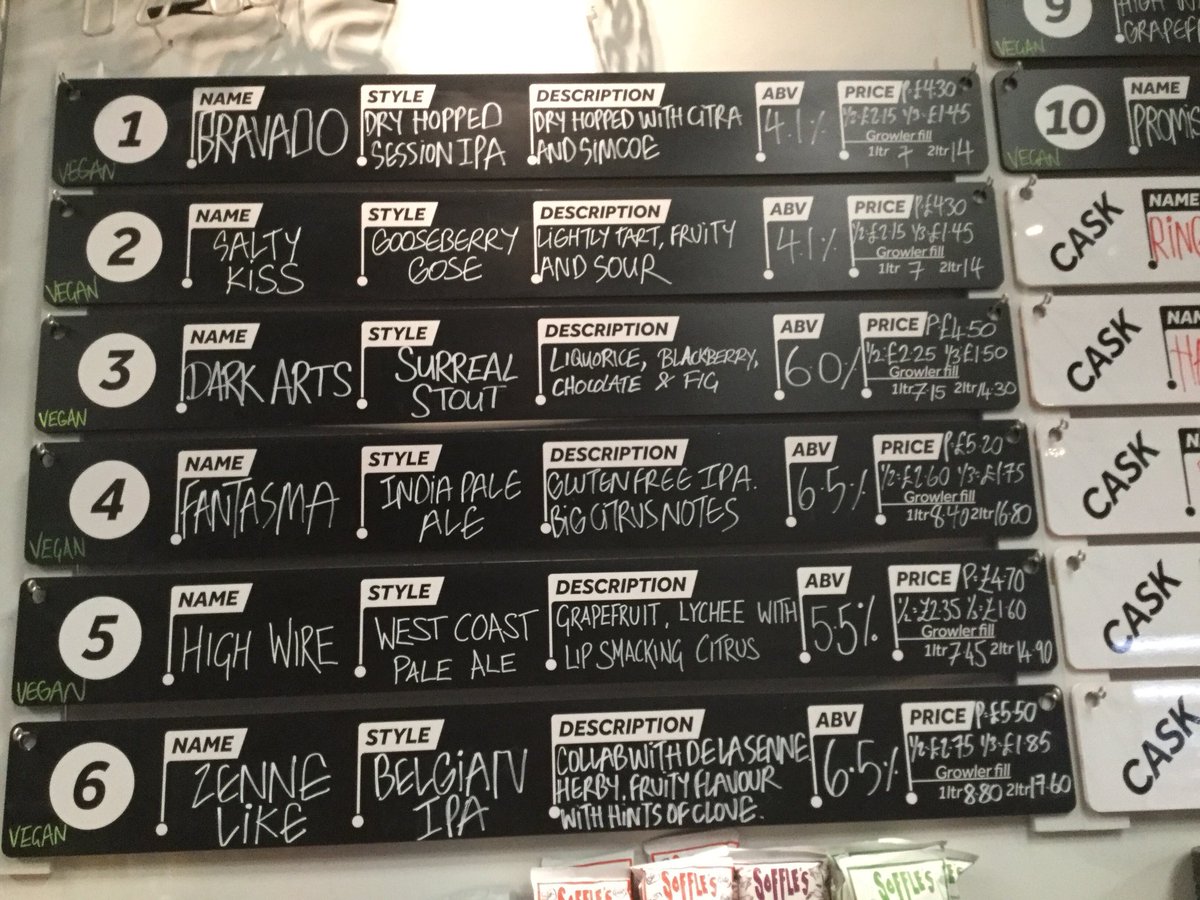 1
VEGAN
NAME
BRAVADO
STYLE
DRY HOPPED
SESSION IPA
DESCRIPTION
DRY HOPPED WITH CITRA
AND SIMCOE
ABV
4.1%
PRICE P:£4.30
1/2:£2.15 1/3:£1.45
Growler fill
1ltr 7 2ltr 14
2
VEGAN
NAME
SALTY
KISS
STYLE
GOOSEBERRY
GOSE
DESCRIPTION
LIGHTLY TART, FRUITY
AND SOUR
ABV
4.1%
PRICE P:£4.30
1/2:£2.15 1/3:£1.45
Growler fill
1ltr 7 2ltr 14
3
VEGAN
NAME
DARK ARTS
STYLE
SURREAL
STOUT
DESCRIPTION
LIQUORICE, BLACKBERRY,
CHOCOLATE & FIG
ABV
6.0%
PRICE P:£4.50
1/2:£2.25 1/3:£1.50
Growler fill
1ltr 7.15 2ltr 14.30
4
VEGAN
NAME
FANTASMA
STYLE
INDIA PALE
ALE
DESCRIPTION
GLUTEN FREE IPA.
BIG CITRUS NOTES
ABV
6.5%
PRICE P:£5.20
1/2:£2.60 1/3:£1.75
Growler fill
1ltr 8.40 2ltr 16.80
5
VEGAN
NAME
HIGH WIRE
STYLE
WEST COAST
PALE ALE
DESCRIPTION
GRAPEFRUIT, LYCHEE WITH
LIP SMACKING CITRUS
ABV
5.5%
PRICE P:£4.70
1/2:£2.35 1/3:£1.60
Growler fill
1ltr 7.45 2ltr 14.90
6
VEGAN
NAME
ZENNE
LIKE
STYLE
BELGIAN
IPA
DESCRIPTION
COLLAB WITH DE LA SENNE
HERBY. FRUITY FLAVOUR
WITH HINTS OF CLOVE.
ABV
6.5%
PRICE P:£5.50
1/2:£2.75 1/3:£1.85
Growler fill
1ltr 8.80 2ltr 17.60
9
VEGAN
HIGH
10
VEGAN
NAME
CASK
NAME
CASK
CASK
CASK
CASK
SOFFLE'S
SOFFLE'S
SOFFLE'S
SOFFLE'S